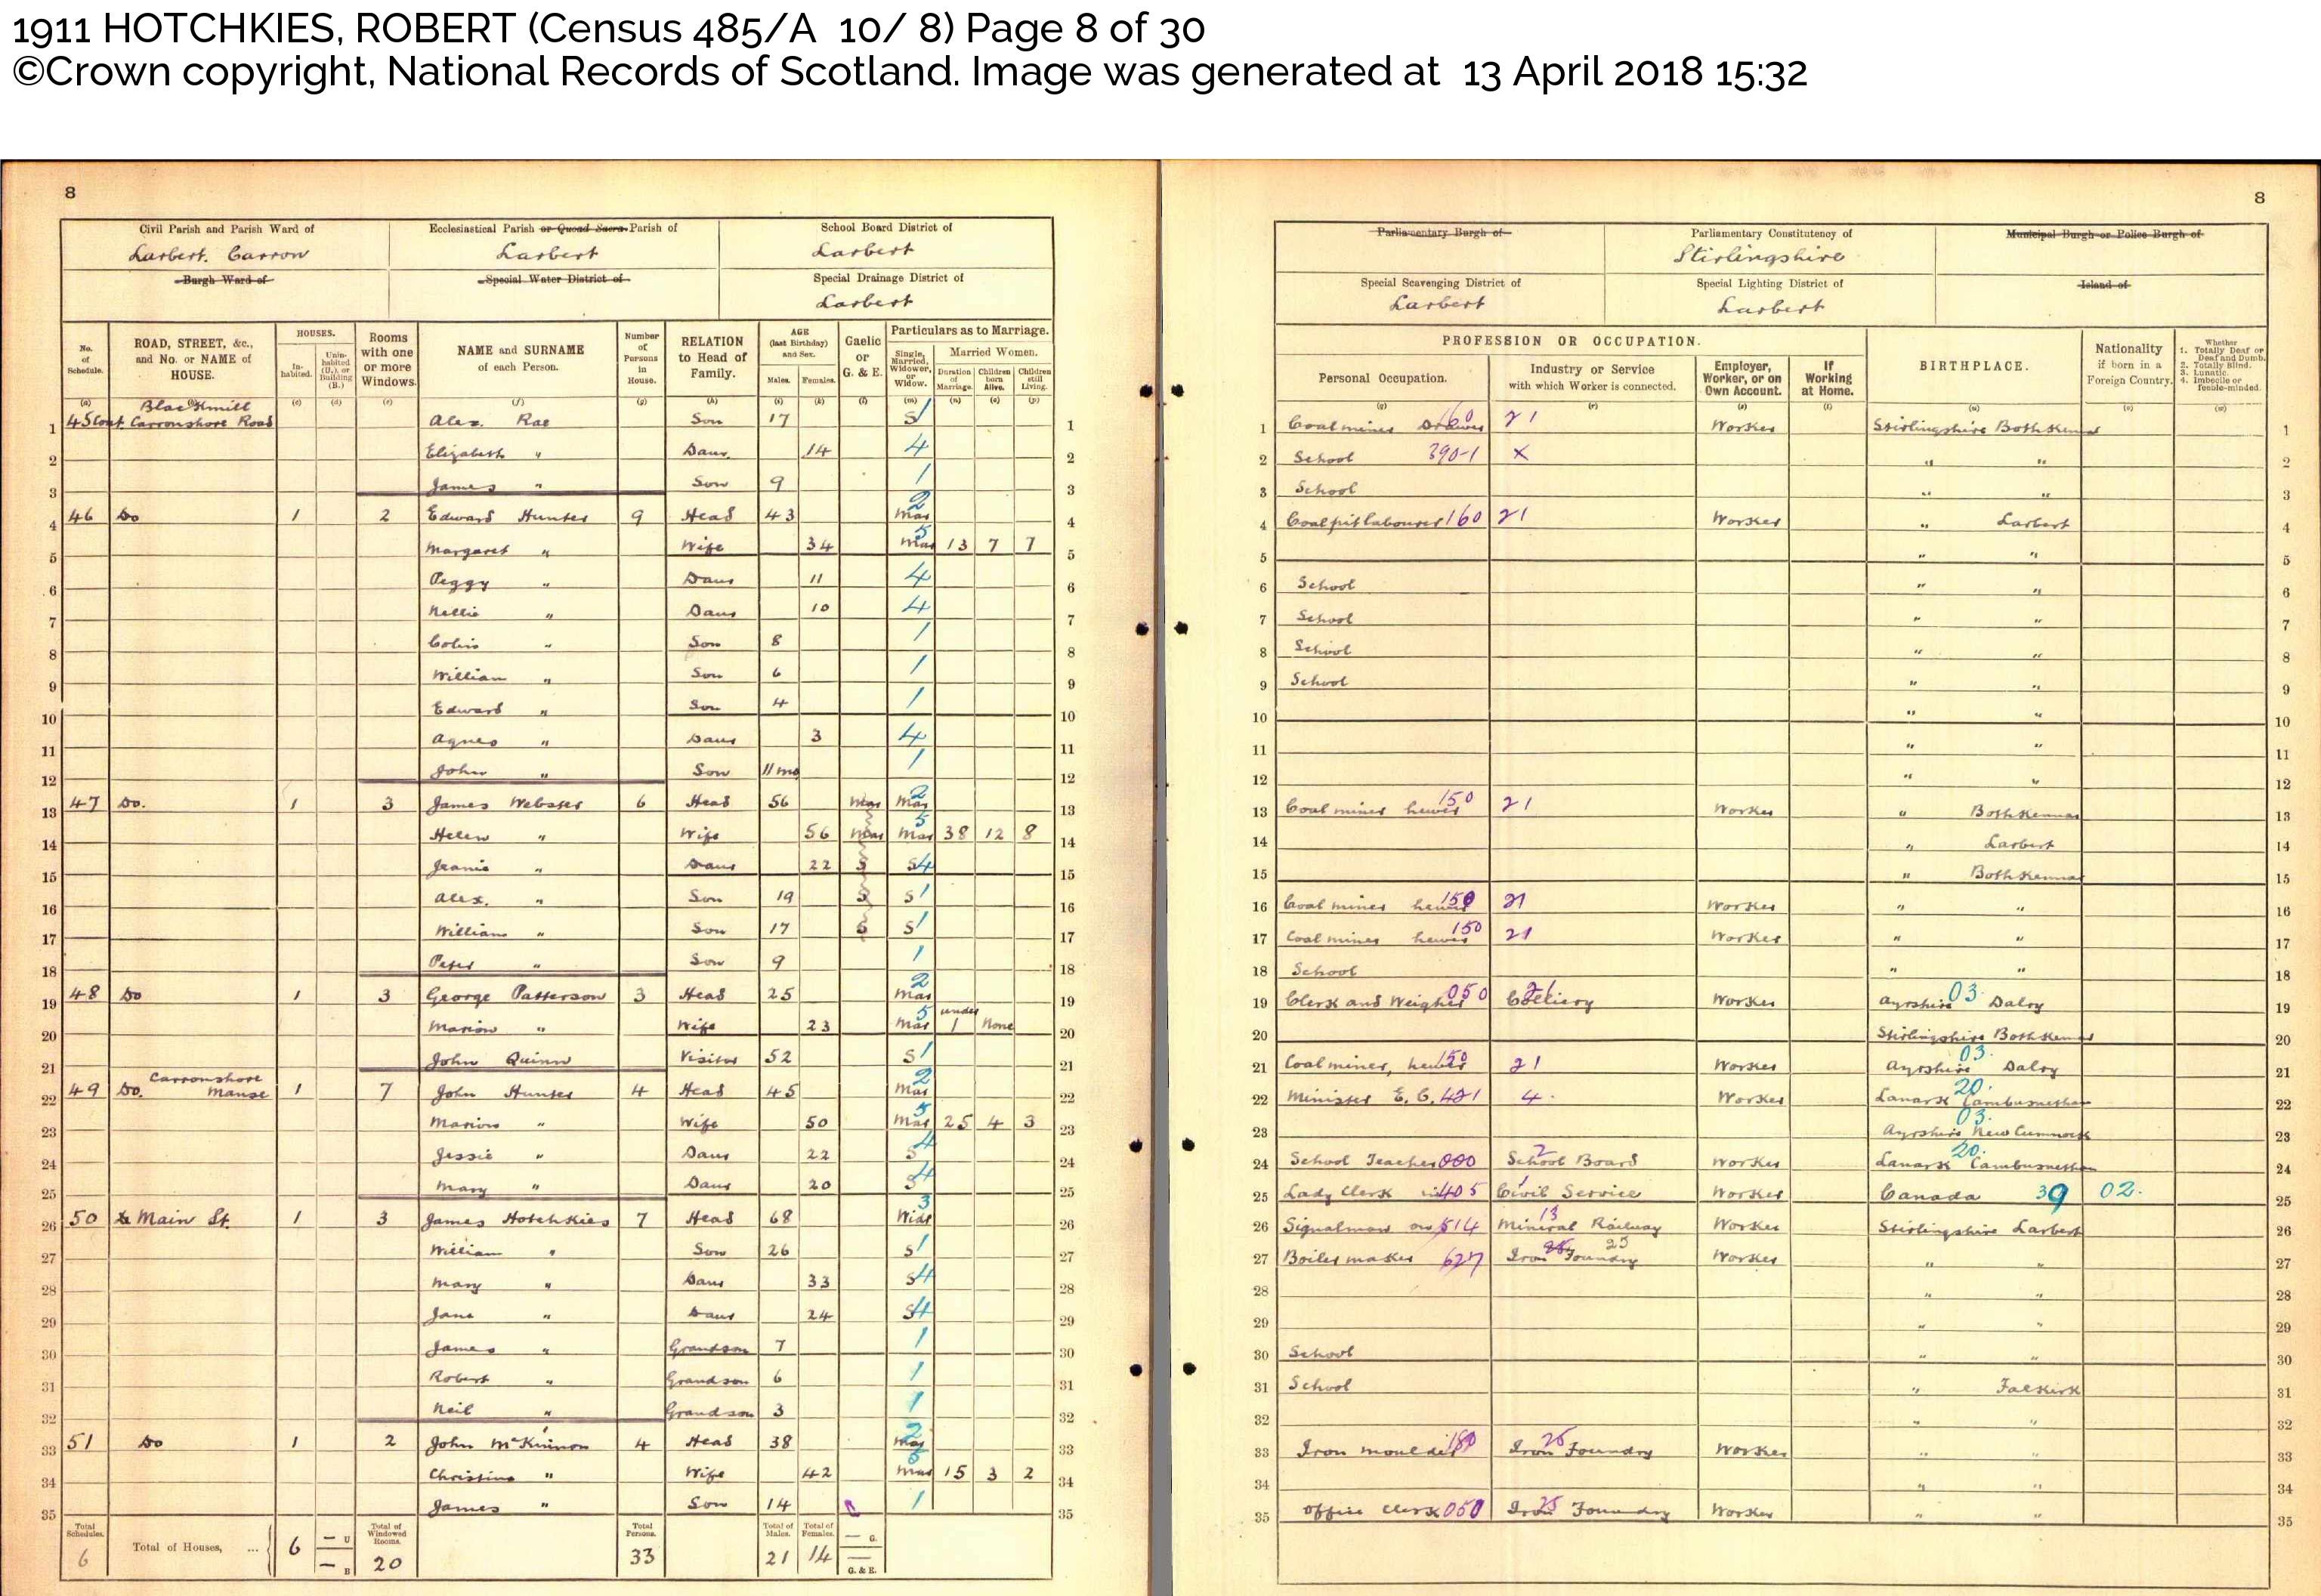 1911 HOTCHKIES, ROBERT (Census 485/A 10/ 8) Page 8 of 30
©Crown copyright, National Records of Scotland. Image was generated at 13 April 2018 15:32
8
Civil Parish and Parish Ward of Ecclesiastical Parish or Quoad Sacra Parish of School Board District of
Larbert. Carron Larbert Larbert
Burgh Ward of Special Water District of Special Drainage District of
Larbert
No. of Schedule. ROAD, STREET, &c., and No. or NAME of HOUSE. HOUSES. Inhabited. Uninhabited (U.), or Building (B.) Rooms with one or more Windows. NAME and SURNAME of each Person. Number of Persons in House. RELATION to Head of Family. AGE (last Birthday) and Sex. Males. Females. Gaelic or G. & E. Particulars as to Marriage. Single, Married, Widower, or Widow. Married Women. Duration of Marriage. Children born Alive. Children still Living.
(a) (b) (c) (d) (e) (f) (g) (h) (i) (k) (l) (m) (n) (o) (p)
Blackmill
1 45 Cont. Carronshore Road Alex. Rae Son 17 S 1 1
2 Elizabeth " Daur. 14 4 2
3 James " Son 9 1 3
4 46 Do 1 2 Edward Hunter 9 Head 43 Mar 2 4
5 Margaret " Wife 34 Mar 5 13 7 7 5
6 Peggy " Daur 11 4 6
7 Nellie " Daur 10 4 7
8 Colin " Son 8 1 8
9 William " Son 6 1 9
10 Edward " Son 4 1 10
11 Agnes " Daur 3 4 11
12 John " Son 11 mo 1 12
13 47 Do. 1 3 James Webster 6 Head 56 Mar Mar 2 13
14 Helen " Wife 56 Mar Mar 5 38 12 8 14
15 Jeanie " Daur 22 S S 4 15
16 Alex. " Son 19 S S 1 16
17 William " Son 17 S S 1 17
18 Peter " Son 9 1 18
19 48 Do 1 3 George Patterson 3 Head 25 Mar 2 19
20 Marion " Wife 23 Mar 5 under 1 None 20
21 John Quinn Visitor 52 S 1 21
22 49 Do. Carronshore Manse 1 7 John Hunter 4 Head 45 Mar 2 22
23 Marion " Wife 50 Mar 5 25 4 3 23
24 Jessie " Daur 22 S 4 24
25 Mary " Daur 20 S 4 25
26 50 Main St. 1 3 James Hotchkies 7 Head 68 Widr 3 26
27 William " Son 26 S 1 27
28 Mary " Daur 33 S 4 28
29 Jane " Daur 24 S 4 29
30 James " Grandson 7 1 30
31 Robert " Grandson 6 1 31
32 Neil " Grandson 3 1 32
33 51 Do 1 2 John McKinnon 4 Head 38 Mar 2 33
34 Christina " Wife 42 Mar 5 15 3 2 34
35 James " Son 14 1 35
Total Schedules. 6 Total of Houses, ... 6 — U — B Total of Windowed Rooms. 20 Total Persons. 33 Total of Males. 21 Total of Females. 14 — G. — G. & E.
8
Parliamentary Burgh of Parliamentary Constitutency of Municipal Burgh or Police Burgh of
Stirlingshire
Special Scavenging District of Special Lighting District of Island of
Larbert Larbert
PROFESSION OR OCCUPATION. BIRTHPLACE. Nationality if born in a Foreign Country. Whether 1. Totally Deaf or Deaf and Dumb. 2. Totally Blind. 3. Lunatic. 4. Imbecile or feeble-minded.
Personal Occupation. Industry or Service with which Worker is connected. Employer, Worker, or on Own Account. If Working at Home.
(q) (r) (s) (t) (u) (v) (w)
1 Coal miner Drawer 160 21 Worker Stirlingshire Bothkennar 1
2 School 390-1 X " " 2
3 School " " 3
4 Coal pit labourer 160 21 Worker " Larbert 4
5 " " 5
6 School " " 6
7 School " " 7
8 School " " 8
9 School " " 9
10 " " 10
11 " " 11
12 " " 12
13 Coal miner hewer 150 21 Worker " Bothkennar 13
14 " Larbert 14
15 " Bothkennar 15
16 Coal miner hewer 150 21 Worker " " 16
17 Coal miner hewer 150 21 Worker " " 17
18 School " " 18
19 Clerk and Weigher 050 Colliery 21 Worker Ayrshire 03 Dalry 19
20 Stirlingshire Bothkennar 20
21 Coal miner, hewer 150 21 Worker Ayrshire 03. Dalry 21
22 Minister E. C. 421 4. Worker Lanark 20. Cambusnethan 22
23 Ayrshire 03. New Cumnock 23
24 School Teacher School Board 2 Worker Lanark 20. Cambusnethan 24
25 Lady Clerk 405 Civil Service 1 Worker Canada 39 02. 25
26 Signalman on 514 Mineral Railway 13 Worker Stirlingshire Larbert 26
27 Boiler maker 627 Iron Foundry 25 Worker " " 27
28 " " 28
29 " " 29
30 School " " 30
31 School " Falkirk 31
32 " " 32
33 Iron moulder 180 Iron Foundry 25 Worker " " 33
34 " " 34
35 Office Clerk 050 Iron Foundry 25 Worker " " 35